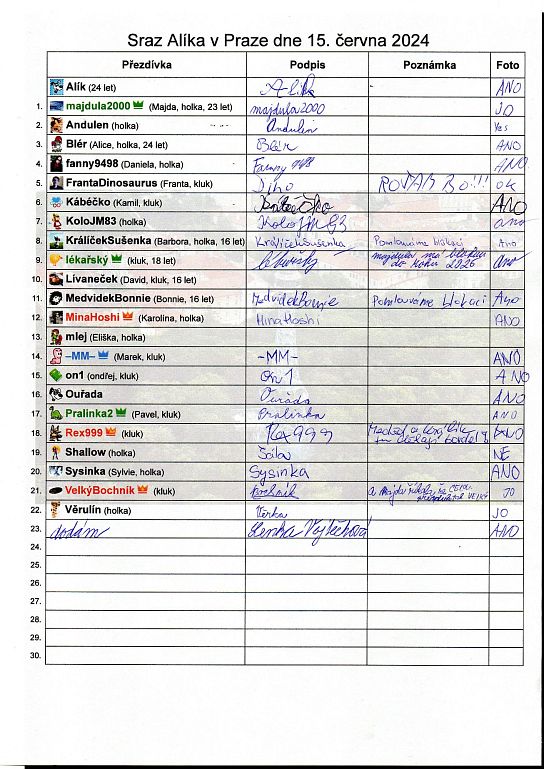 Sraz Alíka v Praze dne 15. června 2024
Přezdívka Podpis Poznámka Foto
Alík (24 let) Alík ANO
1. majdula2000 (Majda, holka, 23 let) majdula2000 JO
2. Andulen (holka) Andulen Yes
3. Blér (Alice, holka, 24 let) Blér ANO
4. fanny9498 (Daniela, holka) Fanny ANO
5. FrantaDinosaurus (Franta, kluk) Jiho !!! ok
6. Kábéčko (Kamil, kluk) Kábéčko ANO
7. KoloJM83 (holka) KoloJM83 ano
8. KrálíčekSušenka (Barbora, holka, 16 let) KrálíčekSušenka Pomlouváme blokaci ANO
9. lékařský (kluk, 18 let) lékařský majdula má blokaci do roku 2026 ano
10. Lívaneček (David, kluk, 16 let)
11. MedvidekBonnie (Bonnie, 16 let) MedvidekBonnie Pomlouváme blokaci Ano
12. MinaHoshi (Karolina, holka) MinaHoshi ANO
13. mlej (Eliška, holka)
14. –MM– (Marek, kluk) -MM- ANO
15. on1 (ondřej, kluk) on1 ANO
16. Ouřada Ouřada ANO
17. Pralinka2 (Pavel, kluk) Pralinka ANO
18. Rex999 (kluk) Rex999 ANO
19. Shallow (holka) Šála NE
20. Sysinka (Sylvie, holka) Sysinka ANO
21. VelkýBochník (kluk) Bochník a Majdu JO
22. Věrulín (holka) Věrka JO
23. dodám Lenka Vojtěchová ANO
24.
25.
26.
27.
28.
29.
30.